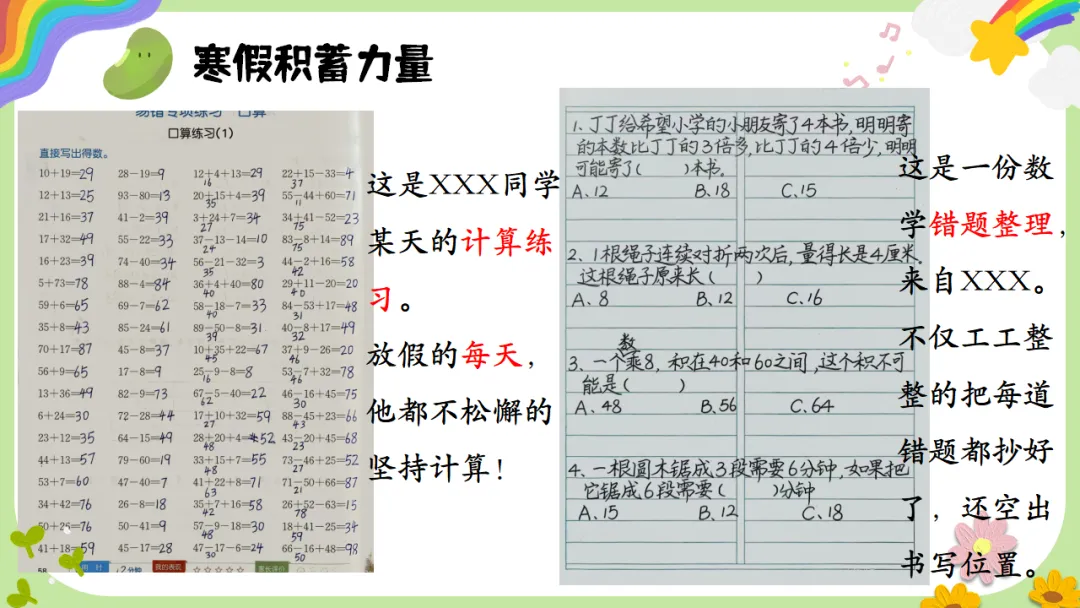 寒假积蓄力量
易错专项练习 口算
口算练习(1)
直接写出得数。
10+19=29 28-19=9 12+4+13=29 22+15-33=4
16 37
12+13=25 93-80=13 20+15+4=39 55-44+60=71
35 11
21+16=37 41-2=39 3+24+7=34 34+41-52=23
27 75
17+32=49 55-22=33 37-13-14=10 83-8+14=89
24 75
16+23=39 74-40=34 56-21-32=3 44-2+16=58
35 42
5+73=78 88-4=84 36+4+40=80 29+11-20=20
40 40
59+6=65 69-7=62 58-18-7=33 84-53+17=48
40 31
35+8=43 85-24=61 89-50-8=31 40-8+17=49
39 32
70+17=87 45-8=37 10+35+22=67 37+9-26=20
45 46
56+9=65 17-8=9 25-9-8=8 53-7+32=78
16 46
13+36=49 82-9=73 67-5-40=22 46-16+45=75
62 30
6+24=30 72-28=44 17+10+32=59 88-45+23=66
27 43
23+12=35 64-15=49 28+20+4=52 43-20+45=68
48 23
44+13=57 79-60=19 33+15+7=55 73-46+25=52
48 27
53+7=60 47-40=7 41+22+8=71 71-50+66=87
63 21
34+42=76 26-8=18 35+7+16=58 26+52-63=15
42 78
50+26=76 50-41=9 57-9-18=30 18+41-25=34
48 59
41+18=59 45-17=28 47-17-6=24 66-16+48=98
30 50
58
这是XXX同学
某天的计算练
习。
放假的每天，
他都不松懈的
坚持计算！
1.丁丁给希望小学的小朋友寄了4本书,明明寄
的本数比丁丁的3倍多,比丁丁的4倍少,明明
可能寄了( )本书。
A.12 B.18 C.15
2.1根绳子连续对折两次后,量得长是4厘米.
这根绳子原来长( )
A、8 B、12 C、16
3、一个数乘8, 积在40和60之间,这个积不可
能是( )
A、48 B、56 C、64
4、一根圆木锯成3段需要6分钟,如果把
它锯成6段需要( )分钟
A、15 B、12 C、18
这是一份数
学错题整理，
来自XXX。
不仅工工整
整的把每道
错题都抄好
了，还空出
书写位置。